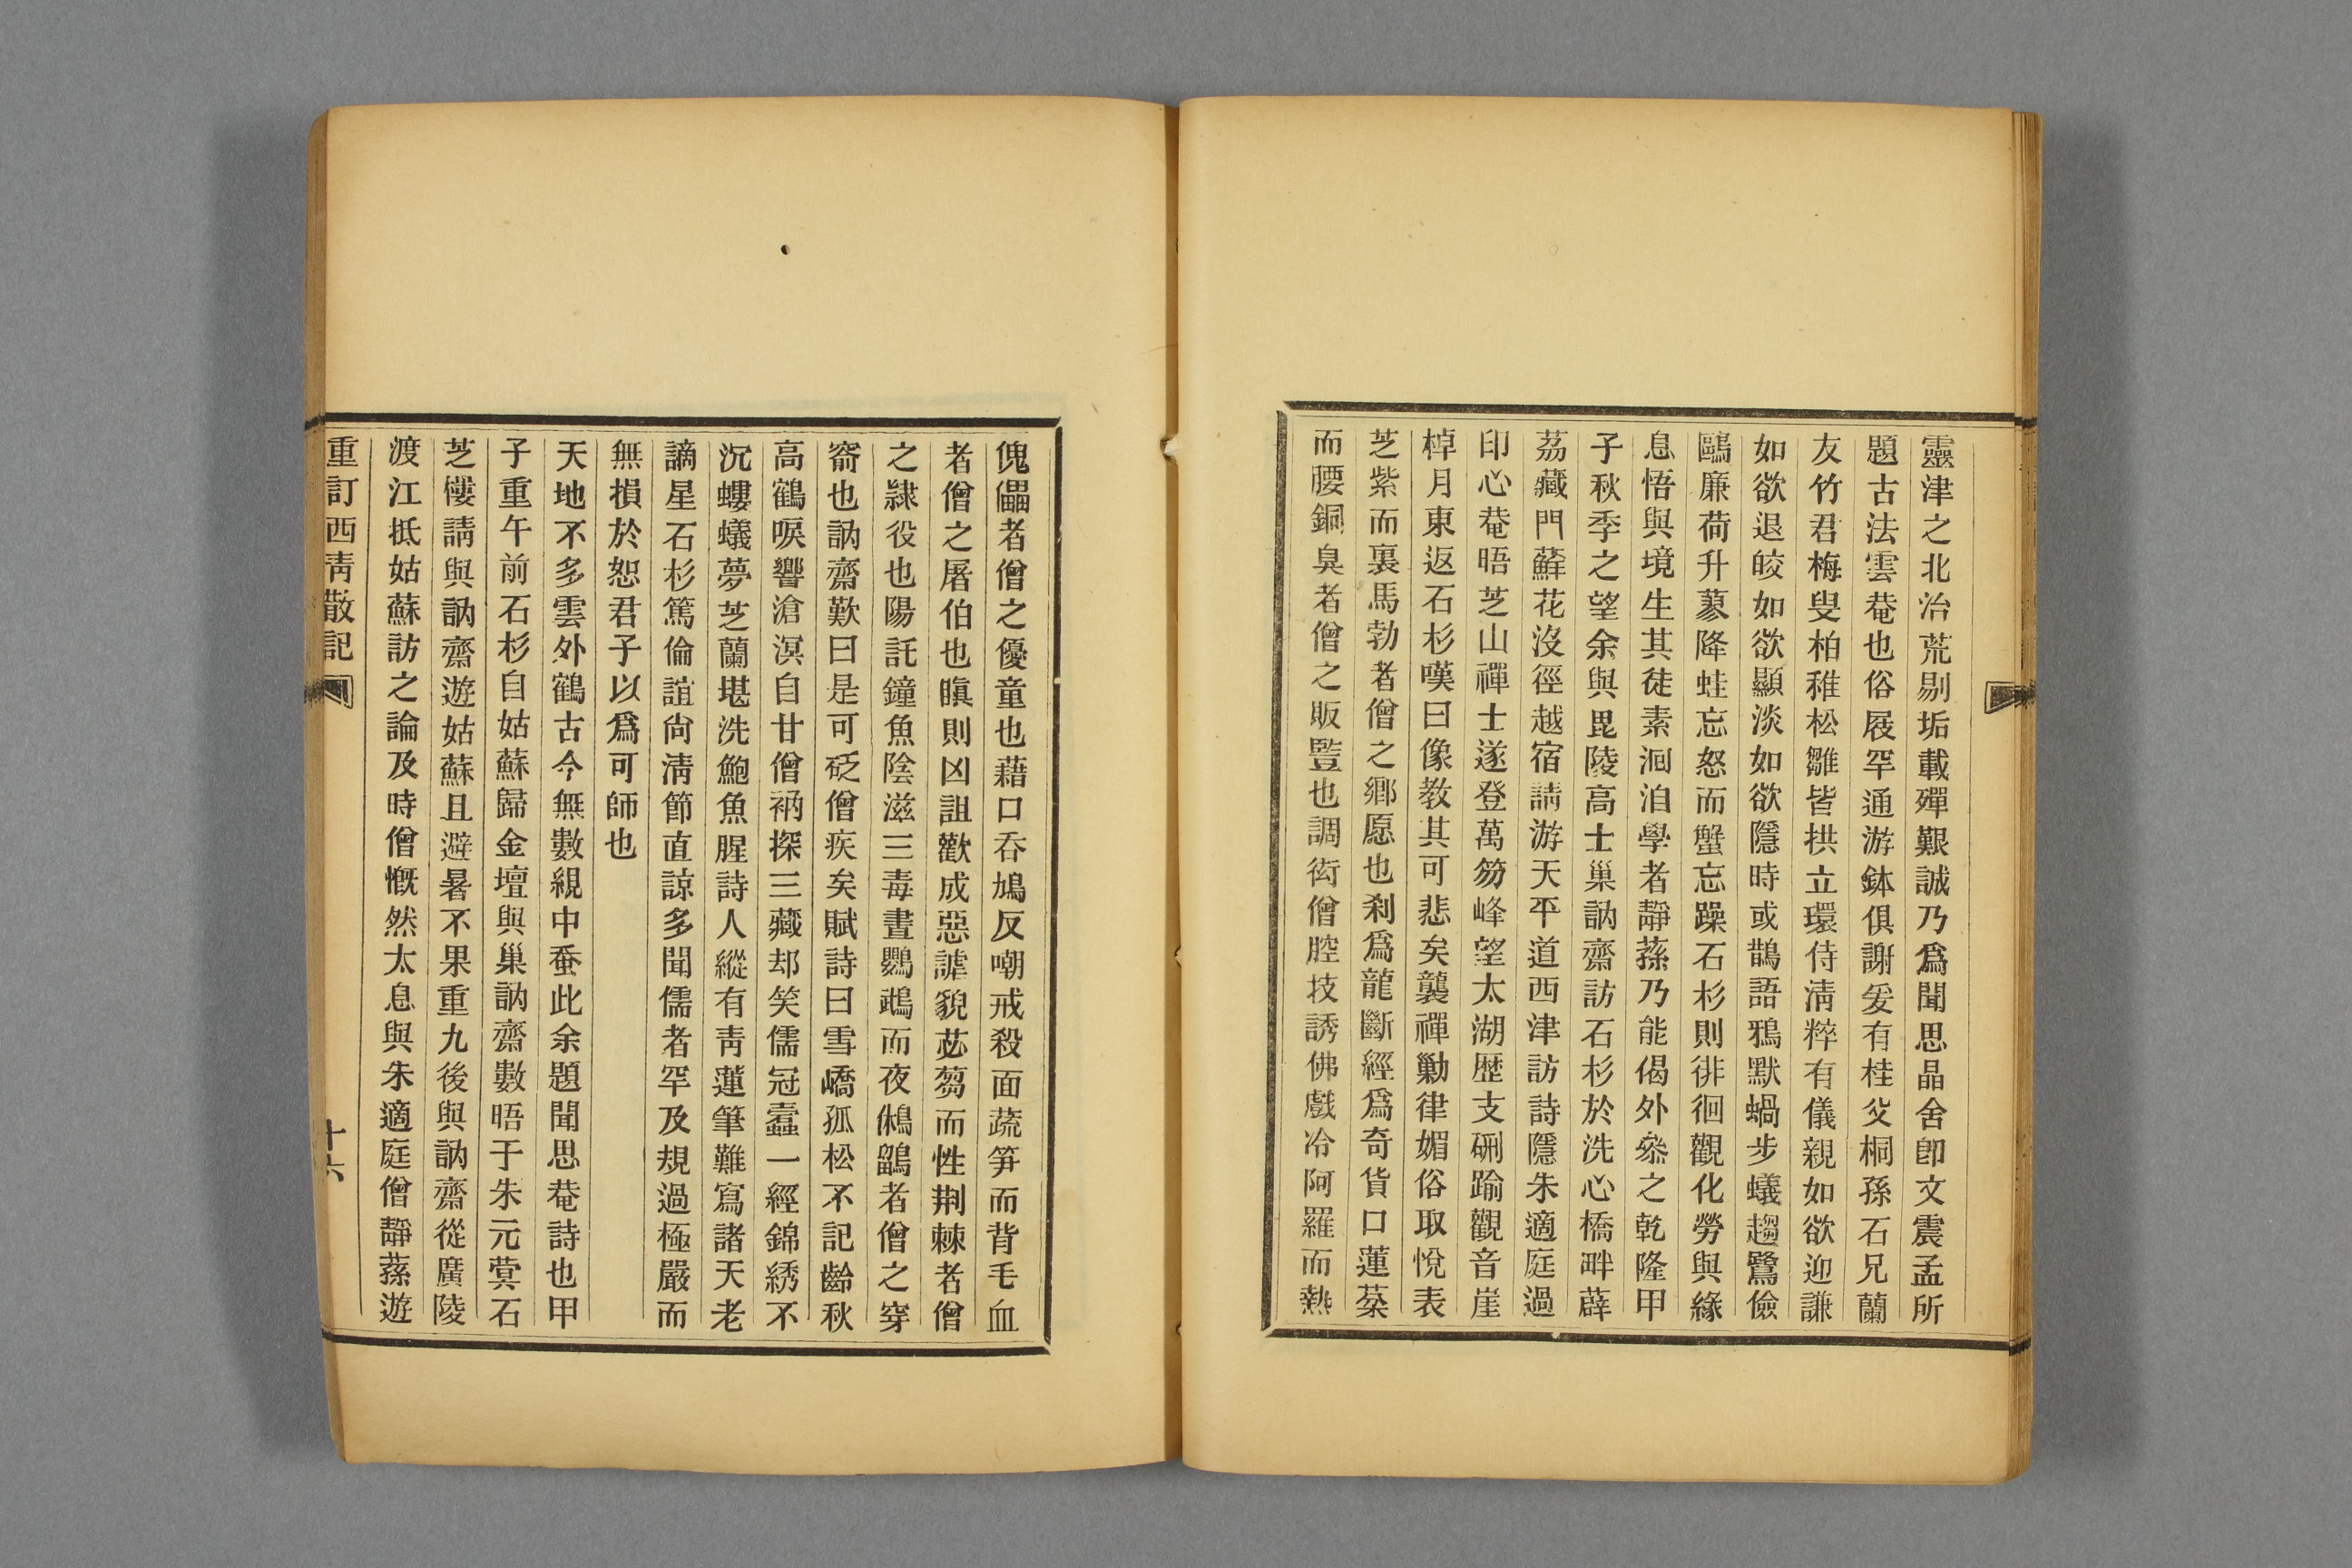 靈津之北治荒剔垢載殫艱誠乃爲聞思晶舍卽文震孟所
題古法雲菴也俗屐罕通游鉢俱謝爰有桂父桐孫石兄蘭
友竹君梅叟柏稚松雛皆拱立環侍淸粹有儀親如欲迎謙
如欲退皎如欲顯淡如欲隱時或鵲語鴉默蝸步蟻趨鷺儉
鷗廉荷升蓼降蛙忘怒而蟹忘躁石杉則徘徊觀化勞與緣
息悟與境生其徒素洄洎學者靜蓀乃能偈外叅之乾隆甲
子秋季之望余與毘陵高士巢訥齋訪石杉於洗心橋畔薜
荔藏門蘚花沒徑越宿請游天平道西津訪詩隱朱適庭過
印心菴晤芝山禪士遂登萬笏峰望太湖歷支硎踰觀音崖
棹月東返石杉嘆曰像教其可悲矣襲禪勦律媚俗取悅表
芝紫而裏馬勃者僧之鄉愿也剎爲龍斷經爲奇貨口蓮蘂
而腰銅臭者僧之販豎也調銜僧腔技誘佛戲冷阿羅而熱
傀儡者僧之優童也藉口吞鳩反嘲戒殺面蔬笋而背毛血
者僧之屠伯也瞋則凶詛歡成惡謔貌苾蒭而性荆棘者僧
之隷役也陽託鐘魚陰滋三毒晝鸚鵡而夜鵂鶹者僧之穿
窬也訥齋歎曰是可砭僧疾矣賦詩曰雪嶠孤松不記齡秋
高鶴唳響滄溟自甘僧衲探三藏却笑儒冠蠹一經錦綉不
沉螻蟻夢芝蘭堪洗鮑魚腥詩人縱有靑蓮筆難寫諸天老
謫星石杉篤倫誼尙淸節直諒多聞儒者罕及規過極嚴而
無損於恕君子以爲可師也
天地不多雲外鶴古今無數繭中蚕此余題聞思菴詩也甲
子重午前石杉自姑蘇歸金壇與巢訥齋數晤于朱元蓂石
芝樓請與訥齋遊姑蘇且避暑不果重九後與訥齋從廣陵
渡江抵姑蘇訪之論及時僧慨然太息與朱適庭僧靜蓀遊
重訂西靑散記
十六